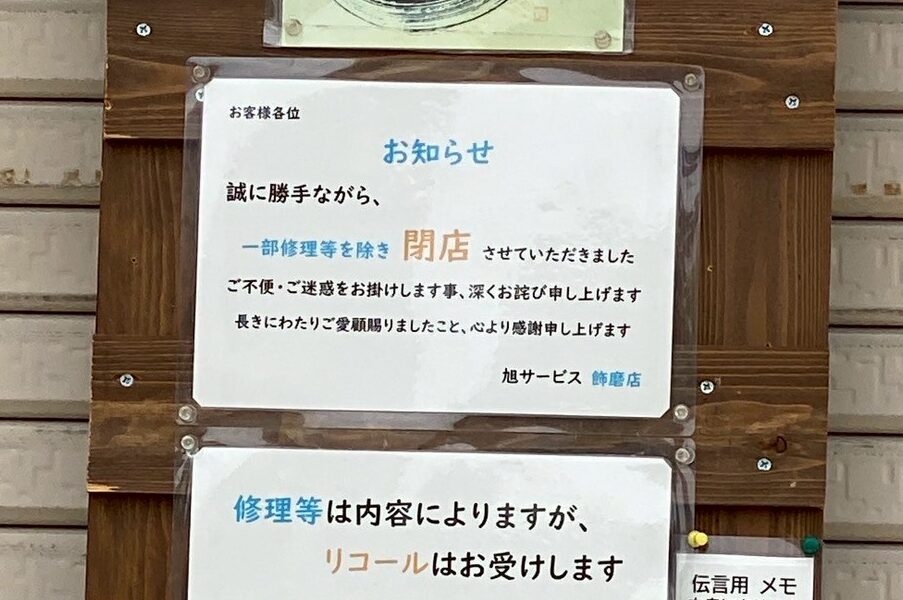 お客様各位
お知らせ
誠に勝手ながら、
一部修理等を除き 閉店 させていただきました
ご不便・ご迷惑をお掛けします事、深くお詫び申し上げます
長きにわたりご愛顧賜りましたこと、心より感謝申し上げます
旭サービス 飾磨店
修理等は内容によりますが、
リコールはお受けします
伝言用 メモ